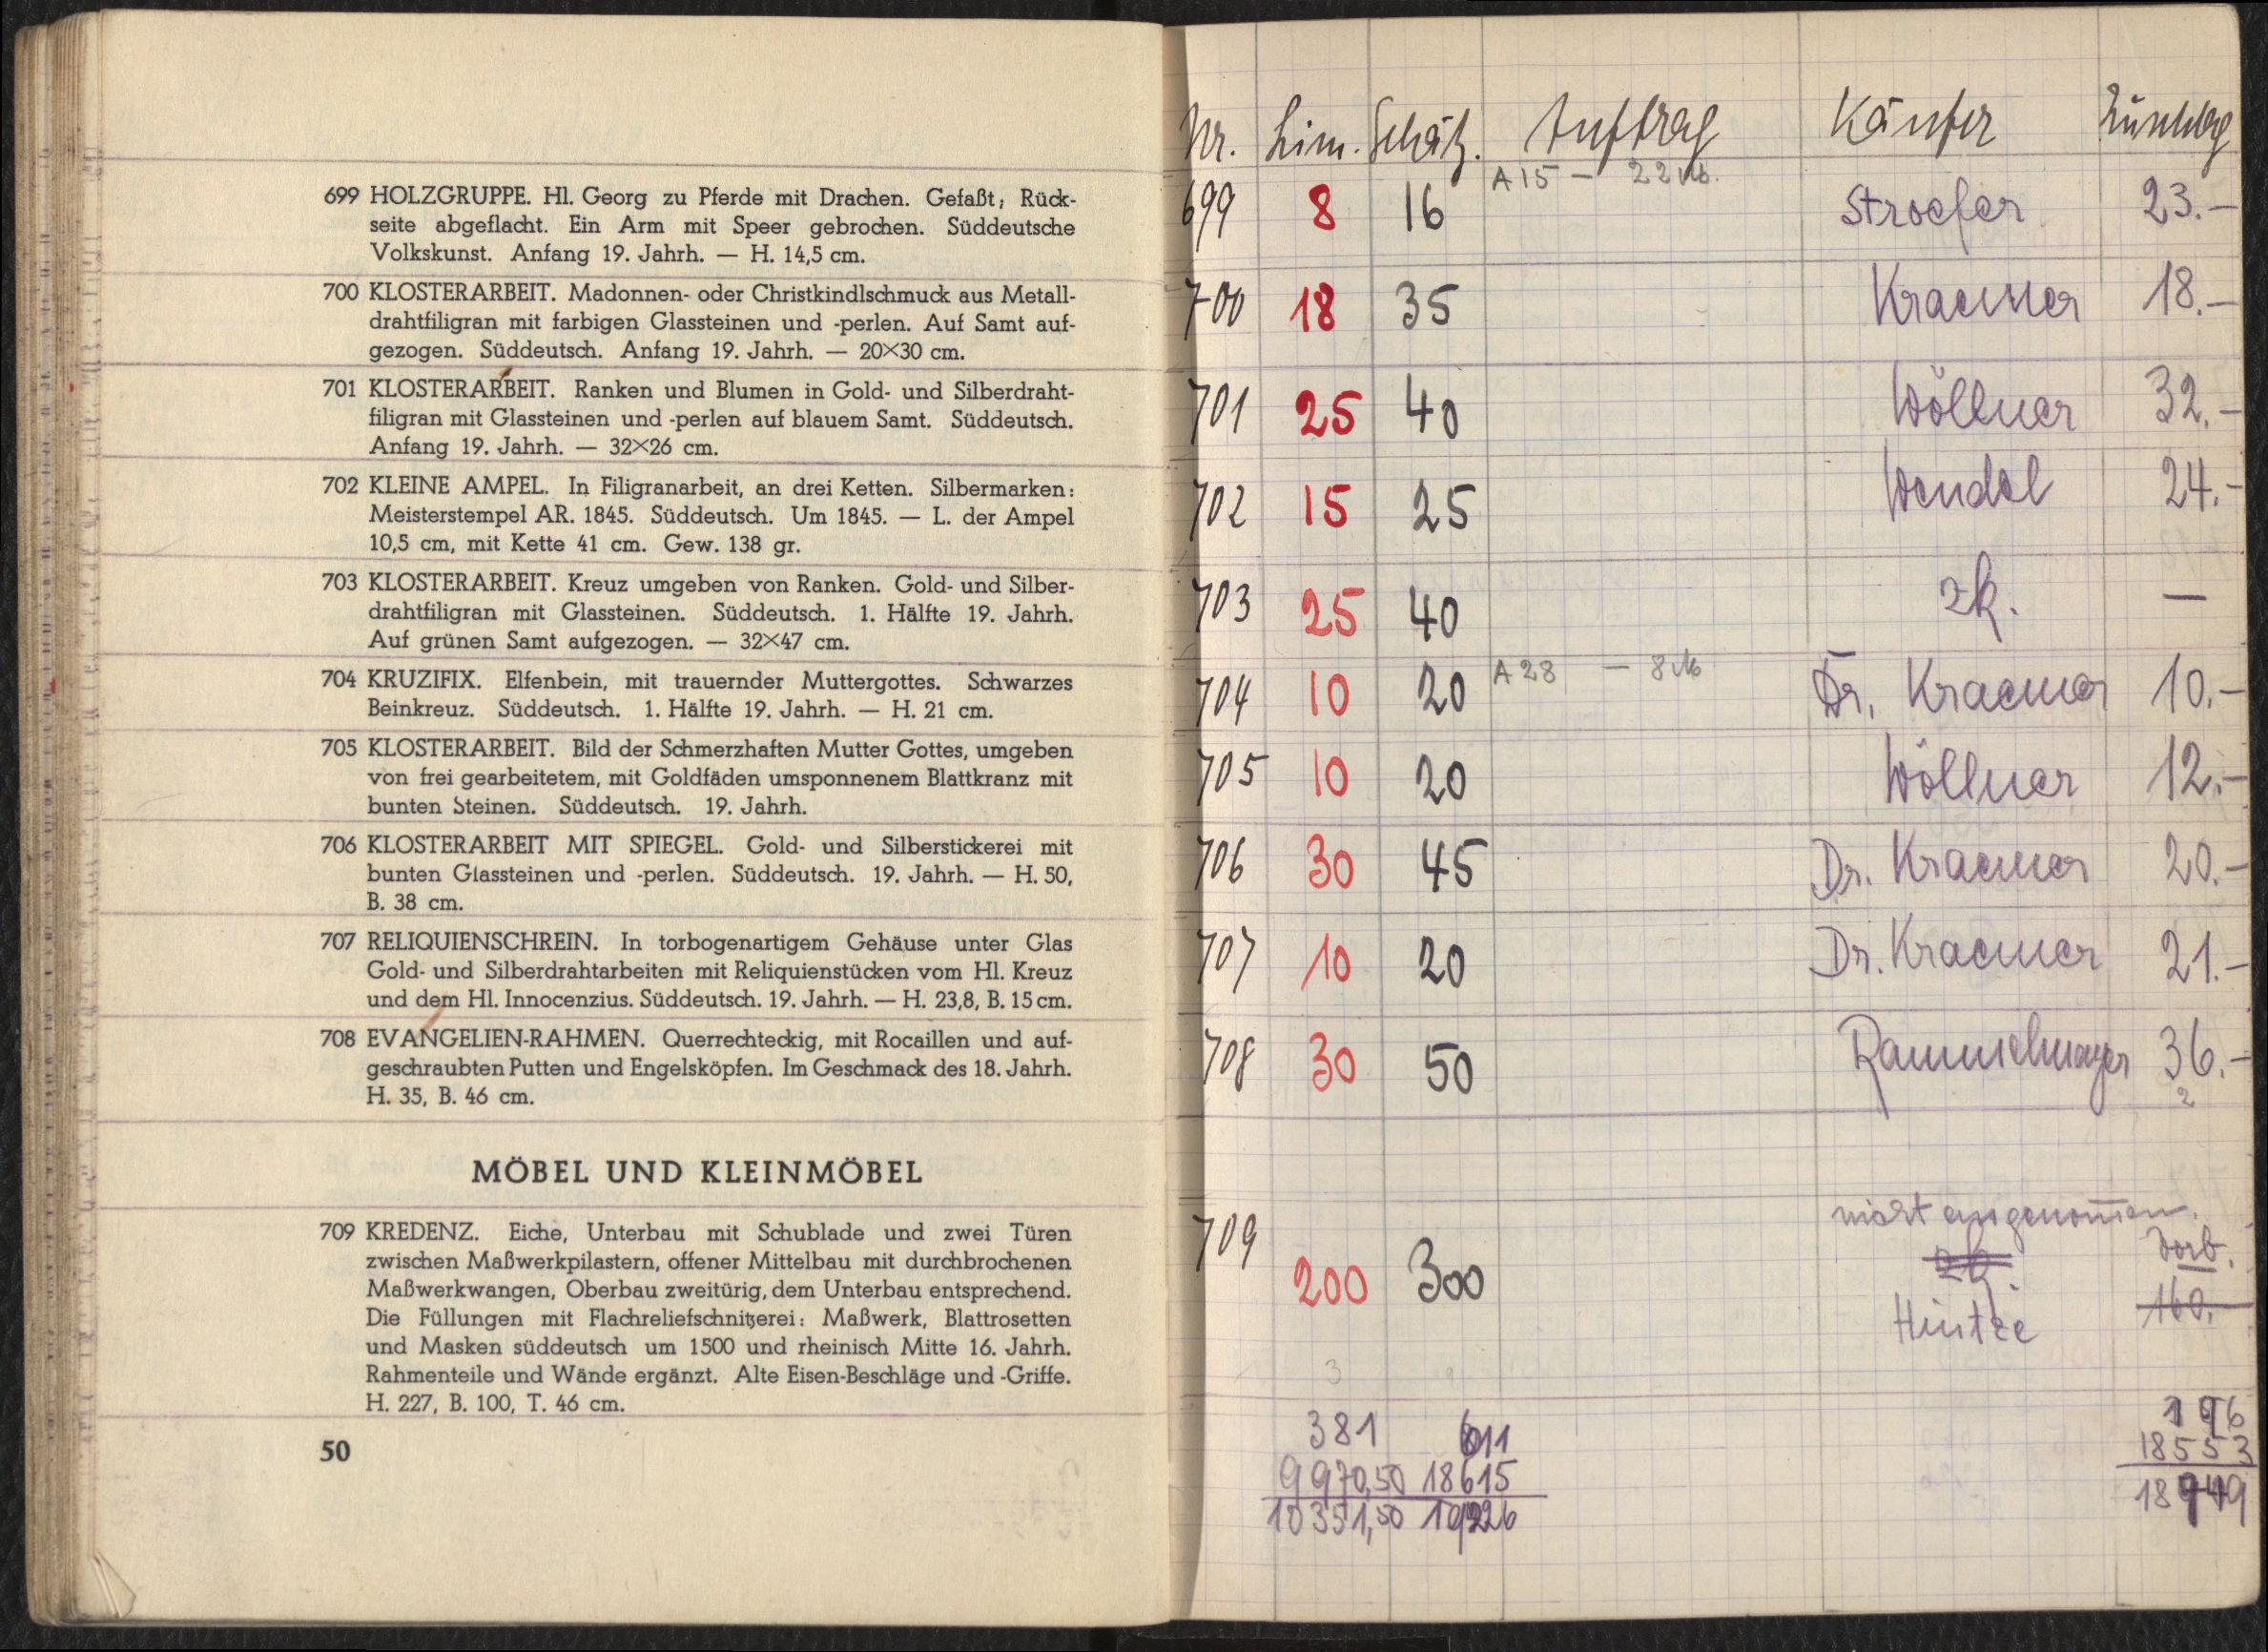 699 HOLZGRUPPE. Hl. Georg zu Pferde mit Drachen. Gefaßt; Rück-
seite abgeflacht. Ein Arm mit Speer gebrochen. Süddeutsche
Volkskunst. Anfang 19. Jahrh. — H. 14,5 cm.
700 KLOSTERARBEIT. Madonnen- oder Christkindlschmuck aus Metall-
drahtfiligran mit farbigen Glassteinen und -perlen. Auf Samt auf-
gezogen. Süddeutsch. Anfang 19. Jahrh. — 20×30 cm.
701 KLOSTERARBEIT. Ranken und Blumen in Gold- und Silberdraht-
filigran mit Glassteinen und -perlen auf blauem Samt. Süddeutsch.
Anfang 19. Jahrh. — 32×26 cm.
702 KLEINE AMPEL. In Filigranarbeit, an drei Ketten. Silbermarken:
Meisterstempel AR. 1845. Süddeutsch. Um 1845. — L. der Ampel
10,5 cm, mit Kette 41 cm. Gew. 138 gr.
703 KLOSTERARBEIT. Kreuz umgeben von Ranken. Gold- und Silber-
drahtfiligran mit Glassteinen. Süddeutsch. 1. Hälfte 19. Jahrh.
Auf grünen Samt aufgezogen. — 32×47 cm.
704 KRUZIFIX. Elfenbein, mit trauernder Muttergottes. Schwarzes
Beinkreuz. Süddeutsch. 1. Hälfte 19. Jahrh. — H. 21 cm.
705 KLOSTERARBEIT. Bild der Schmerzhaften Mutter Gottes, umgeben
von frei gearbeitetem, mit Goldfäden umsponnenem Blattkranz mit
bunten Steinen. Süddeutsch. 19. Jahrh.
706 KLOSTERARBEIT MIT SPIEGEL. Gold- und Silberstickerei mit
bunten Glassteinen und -perlen. Süddeutsch. 19. Jahrh. — H. 50,
B. 38 cm.
707 RELIQUIENSCHREIN. In torbogenartigem Gehäuse unter Glas
Gold- und Silberdrahtarbeiten mit Reliquienstücken vom Hl. Kreuz
und dem Hl. Innocenzius. Süddeutsch. 19. Jahrh. — H. 23,8, B. 15 cm.
708 EVANGELIEN-RAHMEN. Querrechteckig, mit Rocaillen und auf-
geschraubten Putten und Engelsköpfen. Im Geschmack des 18. Jahrh.
H. 35, B. 46 cm.
MÖBEL UND KLEINMÖBEL
709 KREDENZ. Eiche, Unterbau mit Schublade und zwei Türen
zwischen Maßwerkpilastern, offener Mittelbau mit durchbrochenen
Maßwerkwangen, Oberbau zweitürig, dem Unterbau entsprechend.
Die Füllungen mit Flachreliefschnitzerei: Maßwerk, Blattrosetten
und Masken süddeutsch um 1500 und rheinisch Mitte 16. Jahrh.
Rahmenteile und Wände ergänzt. Alte Eisen-Beschläge und -Griffe.
H. 227, B. 100, T. 46 cm.
50
Nr. Lim. Schätz. Auftrag Käufer Zuschlag
A 15 — 22
699 8 16 Stroefer 23.—
700 18 35 Kraemer 18.—
701 25 40 Wöllner 32.—
702 15 25 Wendel 24.—
703 25 40 zk. —
704 10 20 A 28 — 8 Dr. Kraemer 10.—
705 10 20 Wöllner 12.—
706 30 45 Dr. Kraemer 20.—
707 10 20 Dr. Kraemer 21.—
708 30 50 Rammelmayer 36.—
2
nicht angenommen.
709 200 300 zk. Vorb.
Hintze 160.—
3
381 611 196
9970,50 18615 18553
10351,50 19226 18749